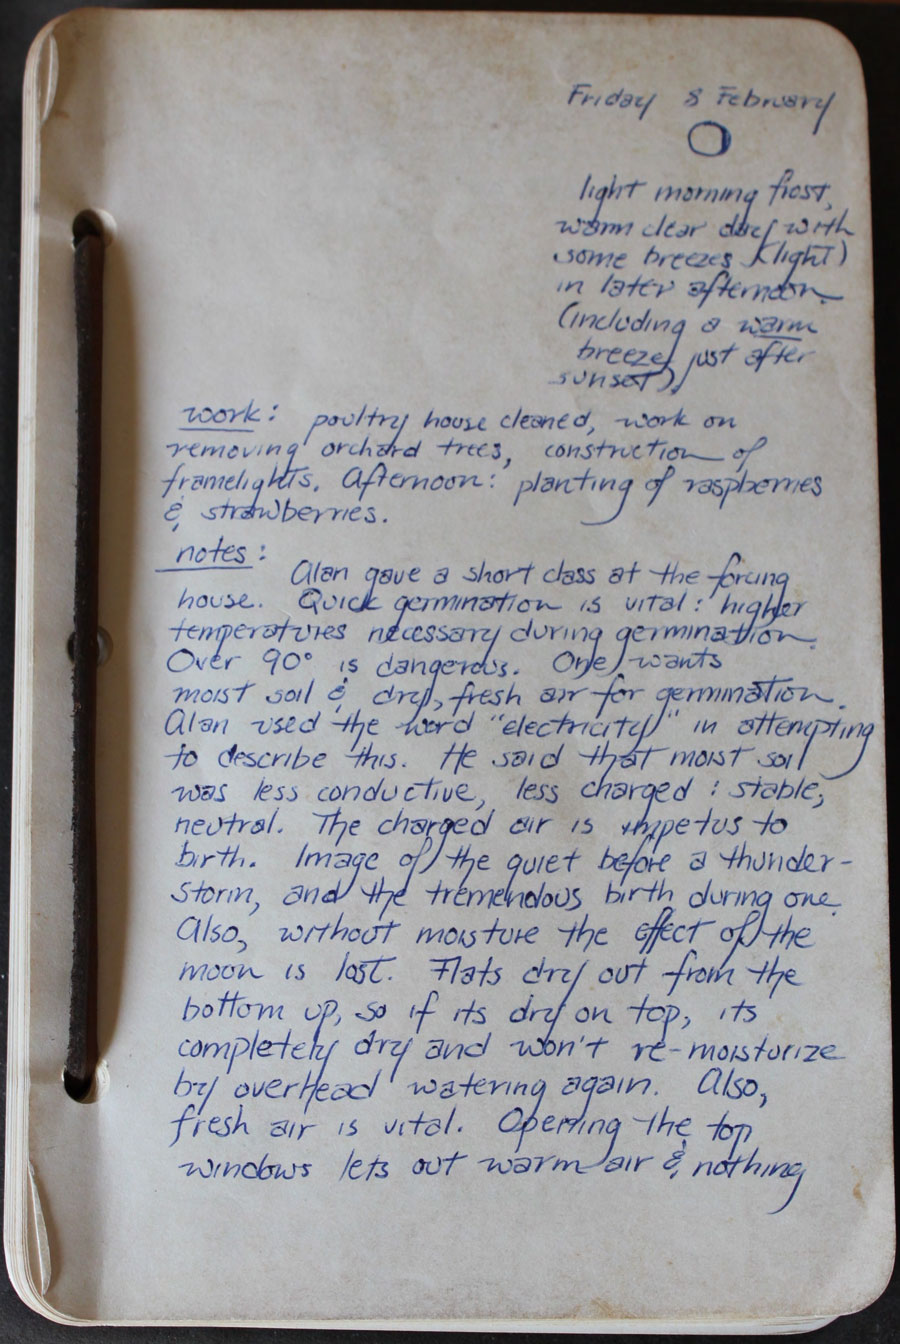 Friday 8 February
light morning frost,
warm clear day with
some breezes (light)
in later afternoon.
(including a warm
breeze just after
sunset).
work: poultry house cleaned, work on
removing orchard trees, construction of
framelights. Afternoon: planting of raspberries
& strawberries.
notes:
Alan gave a short class at the forcing
house. Quick germination is vital: higher
temperatures necessary during germination.
Over 90° is dangerous. One wants
moist soil & dry, fresh air for germination.
Alan used the word "electricity" in attempting
to describe this. He said that moist soil
was less conductive, less charged : stable,
neutral. The charged air is impetus to
birth. Image of the quiet before a thunder-
storm, and the tremendous birth during one.
Also, without moisture the effect of the
moon is lost. Flats dry out from the
bottom up, so if its dry on top, its
completely dry and won't re-moisturize
by overhead watering again. Also,
fresh air is vital. Opening the top
windows lets out warm air & nothing